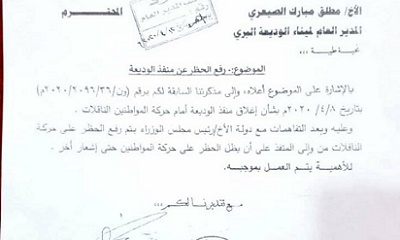 الأخ/ مطلق مبارك الصيعري المحترم
المدير العام لميناء الوديعة البري
تحية طيبة
الموضوع:- رفع الحظر عن منفذ الوديعة
بالإشارة على الموضوع أعلاه، وإلى مذكرتنا السابقة لكم برقم (ون/٢٠٩٦/٣٦/٢٠٢٠م)
بتاريخ ٢٠٢٠/٤/٨م بشأن إغلاق منفذ الوديعة أمام حركة المواطنين الناقلات .
وعليه وبعد التفاهمات مع دولة الأخ/رئيس مجلس الوزراء يتم رفع الحظر على حركة
الناقلات من وإلى المنفذ على أن يظل الحظر على حركة المواطنين حتى إشعار أخر .
للأهمية يتم العمل بموجبه .
مع تقديرنا لكم ،،،